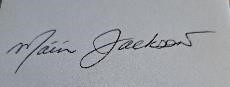 Main Jackson